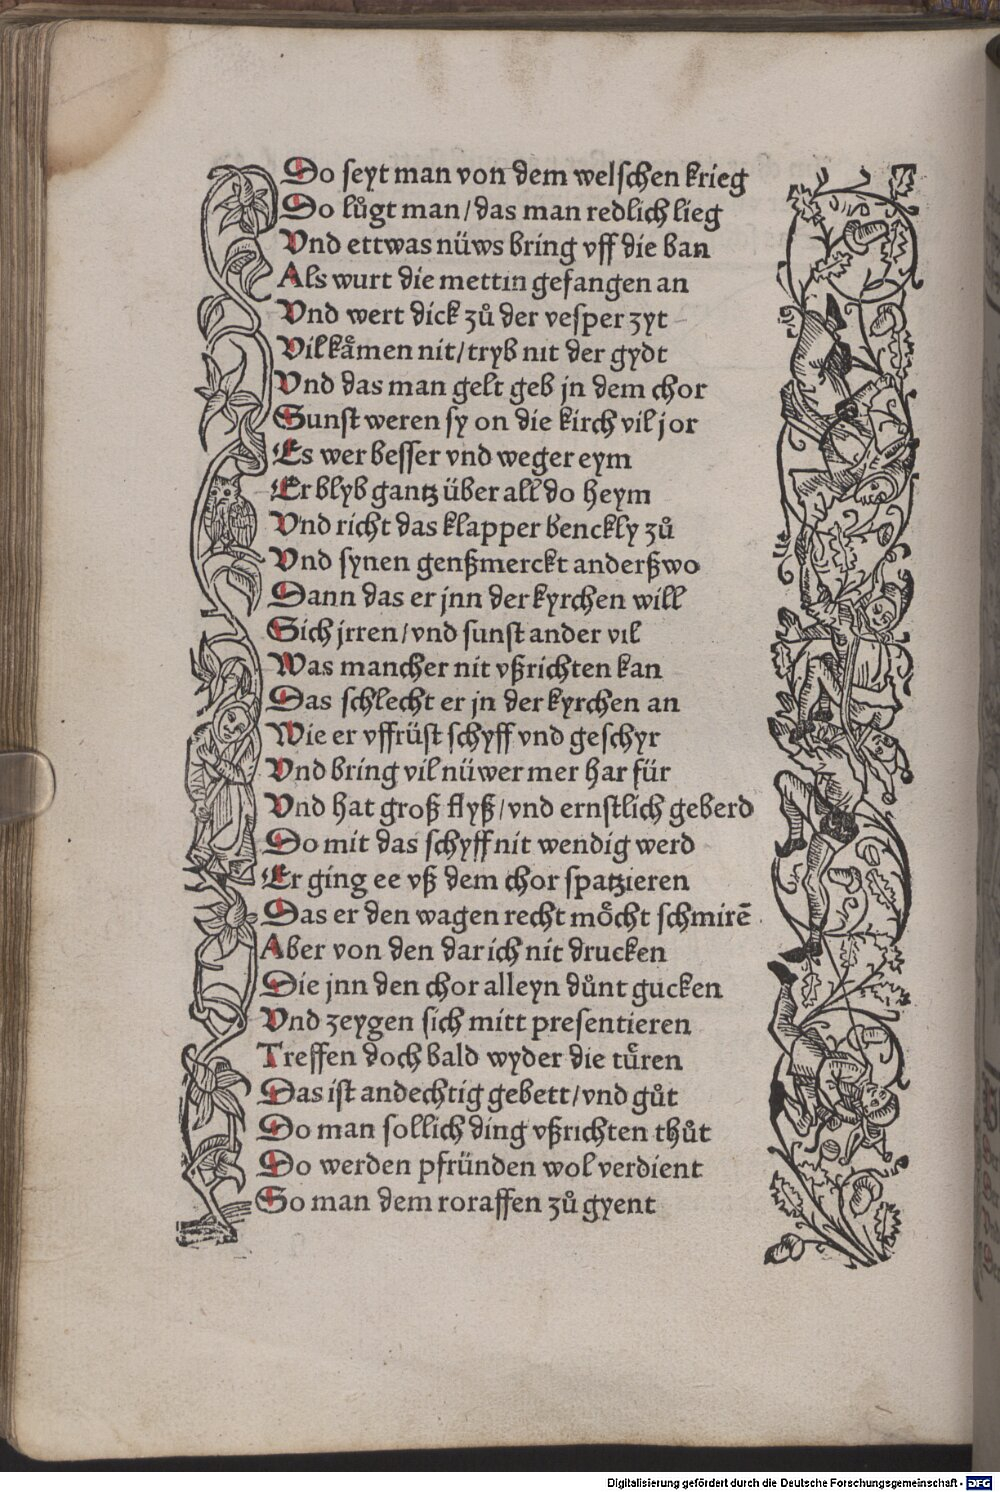 Do seyt man von dem welschen krieg
Do lůgt man/das man redlich lieg
Vnd ettwas nüws bring vff die ban
Als wurt die mettin gefangen an
Vnd wert dick zů der vesper zyt
Vil kåmen nit/tryb nit der gydt
Vnd das man gelt geb jn dem chor
Sunst weren sy on die kirch vil jor
Es wer besser vnd weger eym
Er blyb gantz über all do heym
Vnd richt das klapper benckly zů
Vnd synen genßmerckt anderßwo
Dann das er jnn der kyrchen will
Sich jrren/vnd sunst ander vil
Was mancher nit vßrichten kan
Das schlecht er jn der kyrchen an
Wie er vffrüst schyff vnd geschyr
Vnd bring vil nüwer mer har für
Vnd hat groß flyß/vnd ernstlich geberd
Do mit das schyff nit wendig werd
Er ging ee vß dem chor spatzieren
Das er den wagen recht möcht schmirē
Aber von den dar ich nit drucken
Die jnn den chor alleyn důnt gucken
Vnd zeygen sich mitt presentieren
Treffen doch bald wyder die türen
Das ist andechtig gebett/vnd gůt
Do man sollich ding vßrichten thůt
Do werden pfründen wol verdient
So man dem roraffen zů gyent
Digitalisierung gefördert durch die Deutsche Forschungsgemeinschaft - DFG